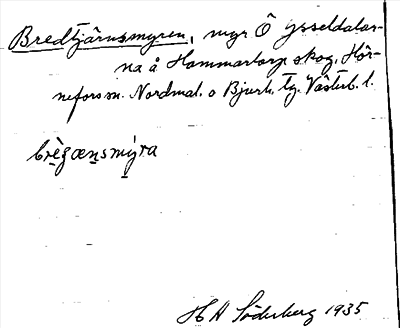 Bredtjärnsmyren, myr Ö Ysseldalar-
na å Hammartorp skog, Hör-
nefors sn. Nordmal. o Bjurh. tg. Västerb. l.
brègænsmỳra
H A Söderberg 1935